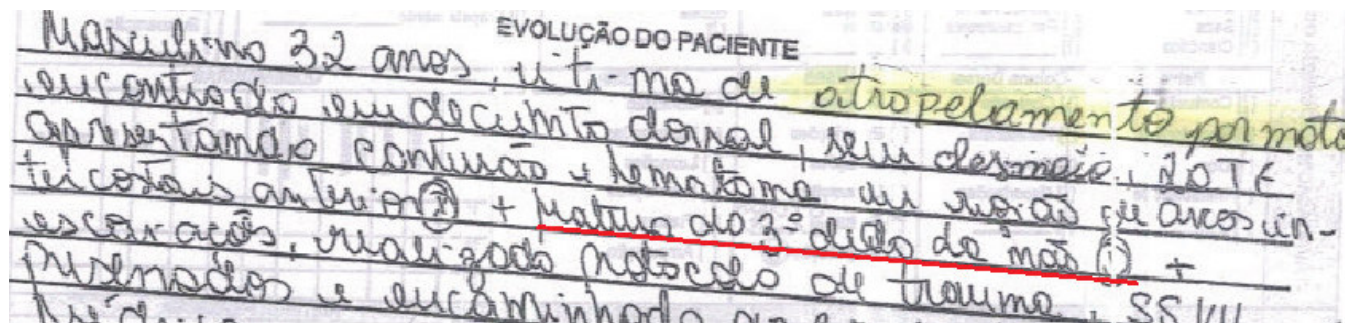 EVOLUÇÃO DO PACIENTE
Masculino 32 anos, vítima de atropelamento por moto
encontrado em decúbito dorsal, sem desmaio, LOTE
apresentando contusão e hematoma em região de arcos in-
tercostais anterior D + fratura do 3º dedo da mão D +
escoriações, realizado protocolo de trauma, SSVV
preservados e encaminhado ao